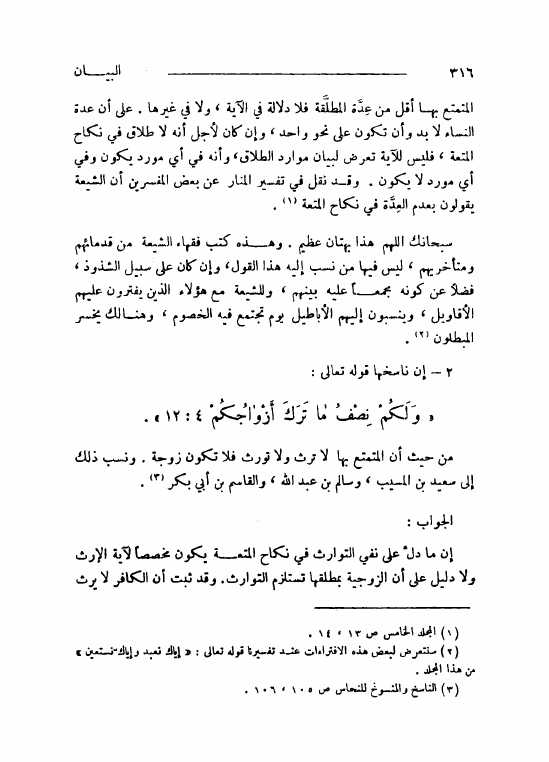 ٣١٦ البيـــان
المتمتع بهـا أقل من عِدَّة المطلَّقة فلا دلالة في الآية ، ولا في غيرها . على أن عدة
النساء لا بد وأن تكون على نحو واحد ، وإن كان لأجل أنه لا طلاق في نكاح
المتعة ، فليس للآية تعرض لبيان موارد الطلاق، وأنه في أي مورد يكون وفي
أي مورد لا يكون . وقـد نقل في تفسير المنار عن بعض المفسرين أن الشيعة
يقولون بعدم العِدَّة في نكاح المتعة (١) .
سبحانك اللهم هذا بهتان عظيم . وهـــذه كتب فقهاء الشيعة من قدمائهم
ومتأخريهم ، ليس فيها من نسب إليه هذا القول، وإن كان على سبيل الشذوذ ،
فضلاً عن كونه مجمعـــاً عليه بينهم ، وللشيعة مع هؤلاء الذين يفترون عليهم
الأقاويل ، وينسبون إليهم الأباطيل يوم تجتمع فيه الخصوم ، وهنـالك يخسر
المبطلون (٢) .
٢ – إن ناسخها قوله تعالى :
« وَلَكُمْ نِصْفُ مٰا تَرَكَ أَزْوٰاجُكُمْ ٤ : ١٢ » .
من حيث أن المتمتع بها لا ترث ولا تورث فلا تكون زوجة . ونسب ذلك
إلى سعيد بن المسيب ، وسالم بن عبد الله ، والقاسم بن أبي بكر (٣) .
الجواب :
إن ما دلّ على نفي التوارث في نكاح المتعـــة يكون مخصصاً لآية الإرث
ولا دليل على أن الزوجية بمطلقها تستلزم التوارث. وقد ثبت أن الكافر لا يرث
(١) المجلد الخامس ص ١٣ ، ١٤ .
(٢) سنتعرض لبعض هذه الافتراءات عنـد تفسيرنا قوله تعالى : « إياك نعبد وإياك نستعين »
من هذا المجلد .
(٣) الناسخ والمنسوخ للنحاس ص ١٠٥ ، ١٠٦ .